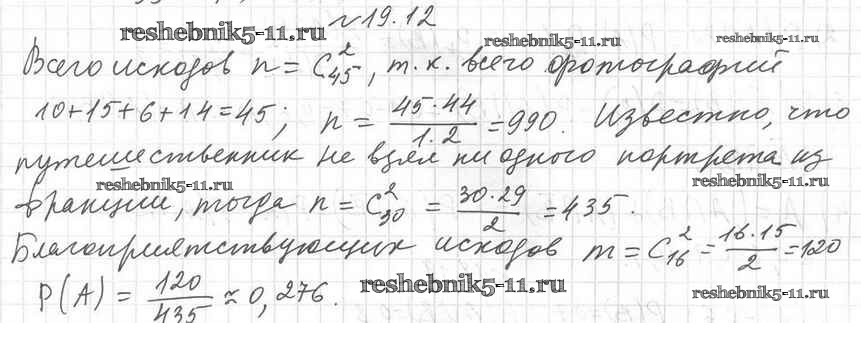 №19.12
reshebnik5-11.ru
reshebnik5-11.ru
Всего исходов n = C²₄₅, т.к. всего фотографий
10+15+6+14=45; n = 45·44/1·2 = 990. Известно, что
путешественник не взял ни одного портрета из
reshebnik5-11.ru
reshebnik5-11.ru
Франции, тогда n = C²₃₀ = 30·29/2 = 435.
Благоприятствующих исходов m = C²₁₆ = 16·15/2 = 120
P(A) = 120/435 ≈ 0,276.
reshebnik5-11.ru
reshebnik5-11.ru